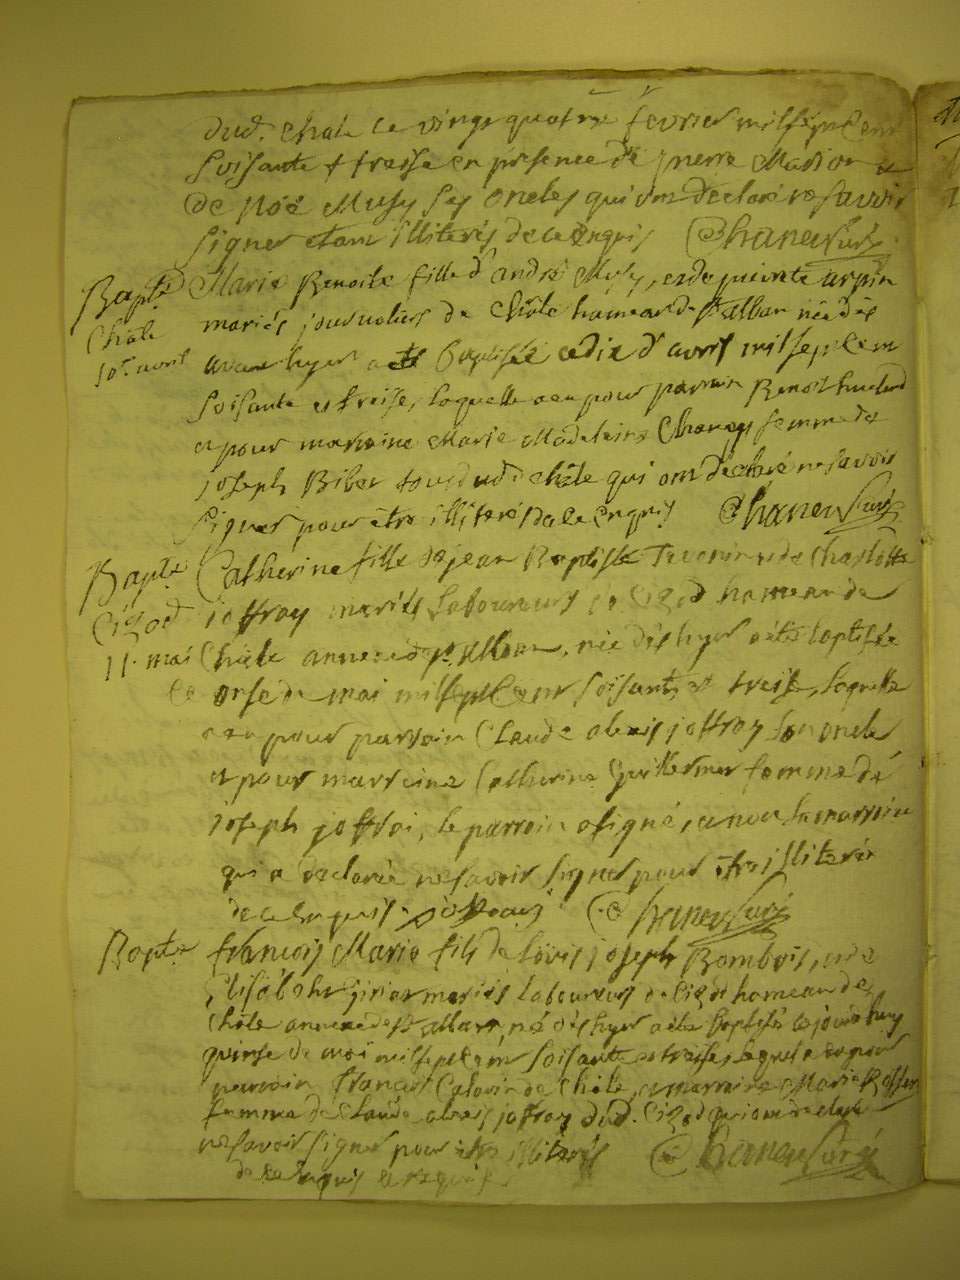 dud. Chale le vingt quatre fevrier mil sept cent
soisante et treise en presence de pierre Marion et
de Noé Musy ses oncles qui ont declaré ne savoir
signer etant illiterés de ce enquis Chaneu Curé
Bapte Marie Benoite fille d'andré Musy, et de
Chale mariés journaliers de Chale hameau de st alban née dès
10e avril avant hyer a eté baptisée ce dix d'avril mil sept cent
soisante et treise, laquelle a eu pour parrain Benoit
et pour marraine Marie Madelaine femme de
joseph Biber tous dud. Chale qui ont declaré ne savoir
signer pour être illiterés de ce enquis Chaneu Curé
Bapte Catherine fille de jean Baptiste et de Charlotte
Cizod joffray mariés laboureurs de Cizod hameau de
11. mai Chale annexe de st. Alban, née dès hyer a eté baptisée
ce onse de mai mil sept cent soisante et treise, laquelle
a eu pour parrain Claude alexis joffroy son oncle
et pour marraine Catherine Guillermer femme de
joseph joffroi, le parrain a signé, et non la marraine
qui a declarée ne savoir signer pour être illiterée
de ce enquise. Chaneu Curé
Bapte francois Marie fils de Lovis joseph Bombois, et de
Elisabeht mariés laboureurs de Cizod hameau de
Chale annexe de st Alban, né dès hyer a eté baptisé ce jourd'huy
quinse de mai mil sept cent soisante et treise, lequel a eu pour
parrain francois de Chale, et marraine Marie
femme de Claude alexis joffroy dud. Cizod qui ont declaré
ne savoir signer pour être illiterés Chaneu Curé
de ce enquis et requis